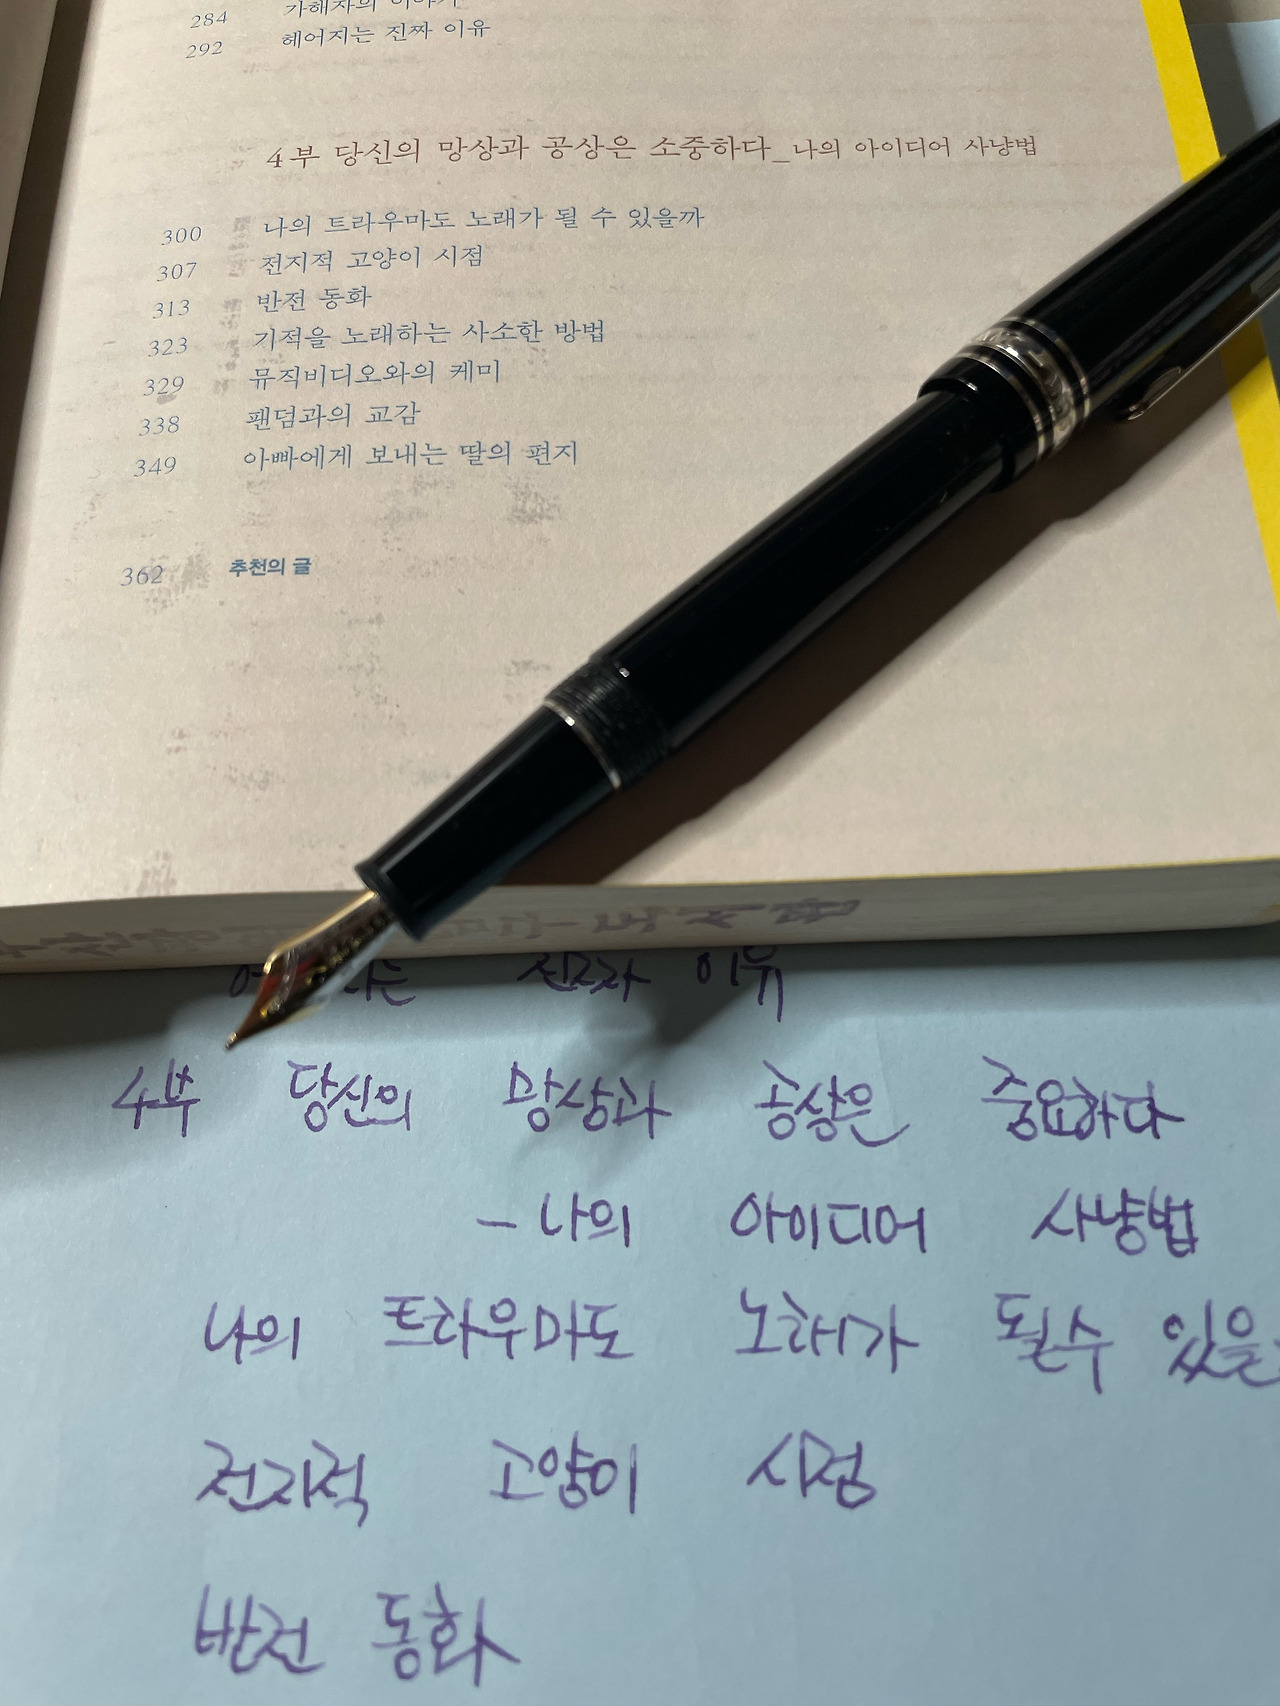 284 가해자의 이야기
292 헤어지는 진짜 이유
4부 당신의 망상과 공상은 소중하다_나의 아이디어 사냥법
300 나의 트라우마도 노래가 될 수 있을까
307 전지적 고양이 시점
313 반전 동화
323 기적을 노래하는 사소한 방법
329 뮤직비디오와의 케미
338 팬덤과의 교감
349 아빠에게 보내는 딸의 편지
362 추천의 글
이유
4부 당신의 망상과 공상은 중요하다
- 나의 아이디어 사냥법
나의 트라우마도 노래가 될수 있을
전지적 고양이 시점
반전 동화